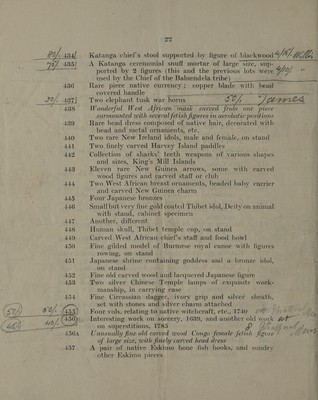 22
80/- 434 Katanga chief's stool supported by figure of blackwood
70/- 435 A Katanga ceremonial snuff mortar of large size, sup-
ported by 2 figures (this and the previous lots were
used by the Chief of the Baluendela tribe)
436 Rare piece native currency; copper blade with bead
covered handle
437 Two elephant tusk war horns 50/- James
438 Wonderful West African mask carved from one piece
surmounted with several fetish figures in acrobatic positions
439 Rare head dress composed of native hair, decorated with
bead and metal ornaments, etc.
440 Two rare New Ireland idols, male and female, on stand
441 Two finely carved Harvey Island paddles
442 Collection of sharks' teeth weapons of various shapes
and sizes, King's Mill Islands
443 Eleven rare New Guinea arrows, some with carved
wood figures and carved staff or club
444 Two West African breast ornaments, beaded baby carrier
and carved New Guinea charm
445 Four Japanese bronzes
446 Small but very fine gold coated Thibet idol, Deity on animal
with stand, cabinet specimen
447 Another, different
448 Human skull, Thibet temple cup, on stand
449 Carved West African chief's staff and food bowl
450 Fine gilded model of Burmese royal canoe with figures
rowing, on stand
451 Japanese shrine containing goddess and a bronze idol,
on stand
452 Fine old carved wood and lacquered Japanese figure
453 Two silver Chinese Temple lamps of exquisite work-
manship, in carrying case
454 Fine Circassian dagger, ivory grip and silver sheath,
set with stones and silver charm attached
50/- 52/- 455 Four vols. relating to native witchcraft, etc., 1740
40/- 40/- 456 Interesting work on sorcery, 1639, and another old work
on superstitions, 1785
456A Unusually fine old carved wood Congo female fetish figure
of large size, with finely carved head dress
457 A pair of native Eskimo bone fish hooks, and sundry
other Eskimo pieces